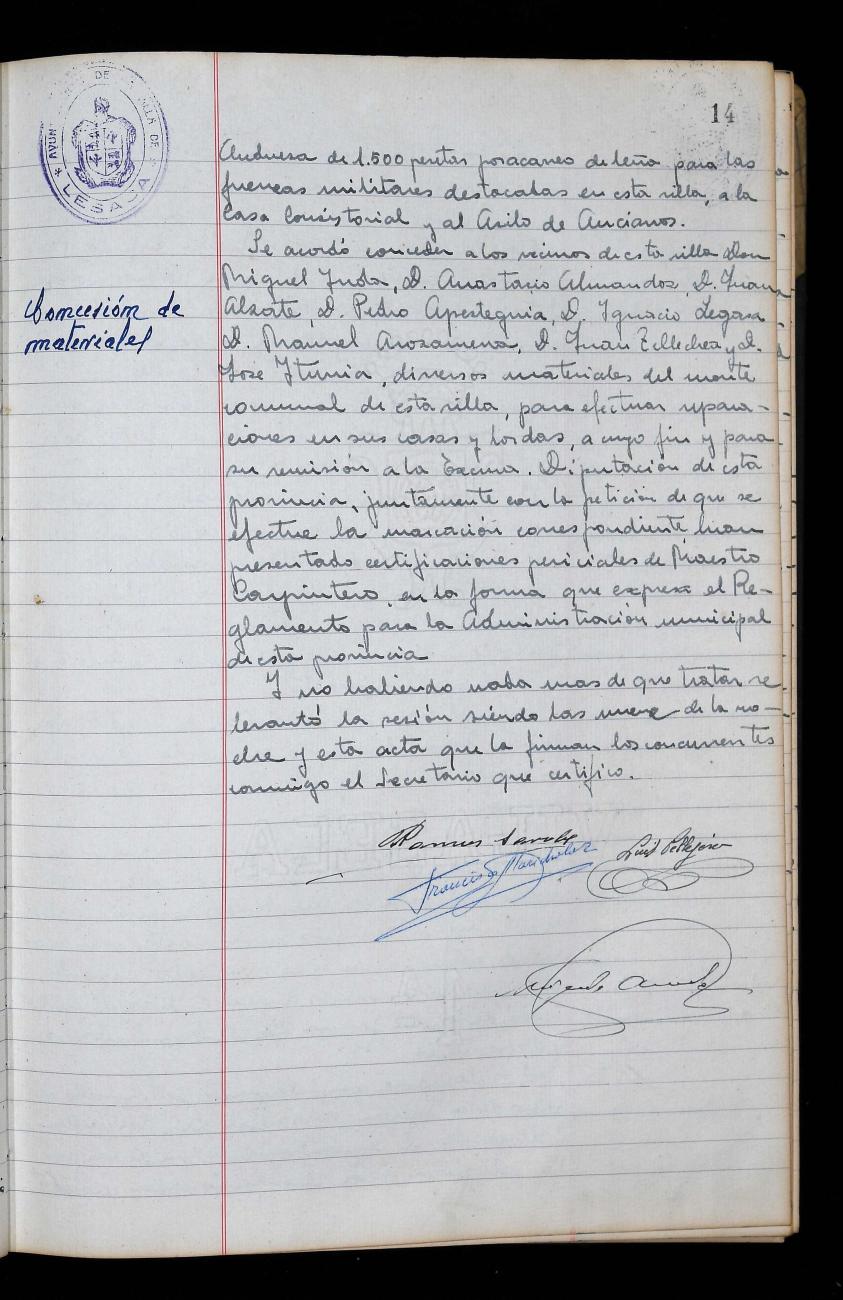 14
AYUNTAMIENTO DE LA VILLA DE
LESACA
Anduesa de 1.500 pesetas por acarreo de leña para las
fuerzas militares destacadas en esta villa, a la
Casa Consistorial y al Asilo de Ancianos.
Se acordó conceder a los vecinos de esta villa Don
Concesión de
materiales
Miguel Inda, D. Anastasio Almandoz, D. Juan
Alzate, D. Pedro Apesteguia, D. Ignacio Legasa
D. Manuel Arozamena, D. Juan Tellechea y D.
José Iturria, diversos materiales del monte
comunal de esta villa, para efectuar repara-
ciones en sus casas y bordas, a cuyo fin y para
su remisión a la Excma. Diputación de esta
provincia, juntamente con la petición de que se
efectue la marcación correspondiente, han
presentado certificaciones periciales de Maestro
Carpintero, en la forma que expresa el Re-
glamento para la Administración municipal
de esta provincia
Y no habiendo nada mas de que tratar se
levantó la sesión siendo las nueve de la no-
che y esta acta que la firman los concurrentes
conmigo el Secretario que certifico.
Francisco
Luis